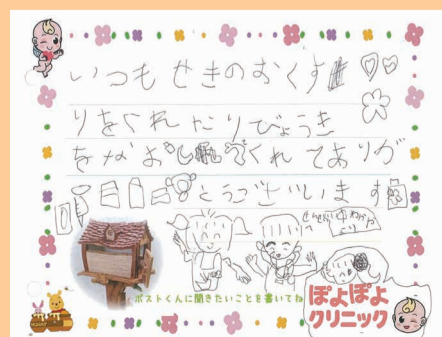 いつもせきのおくす
りをくれたりびょうき
をなおしてくれてありが
とうございます
せんせいへ
ゆめかより
ポストくんに聞きたいことを書いてね
ぽよぽよ
クリニック